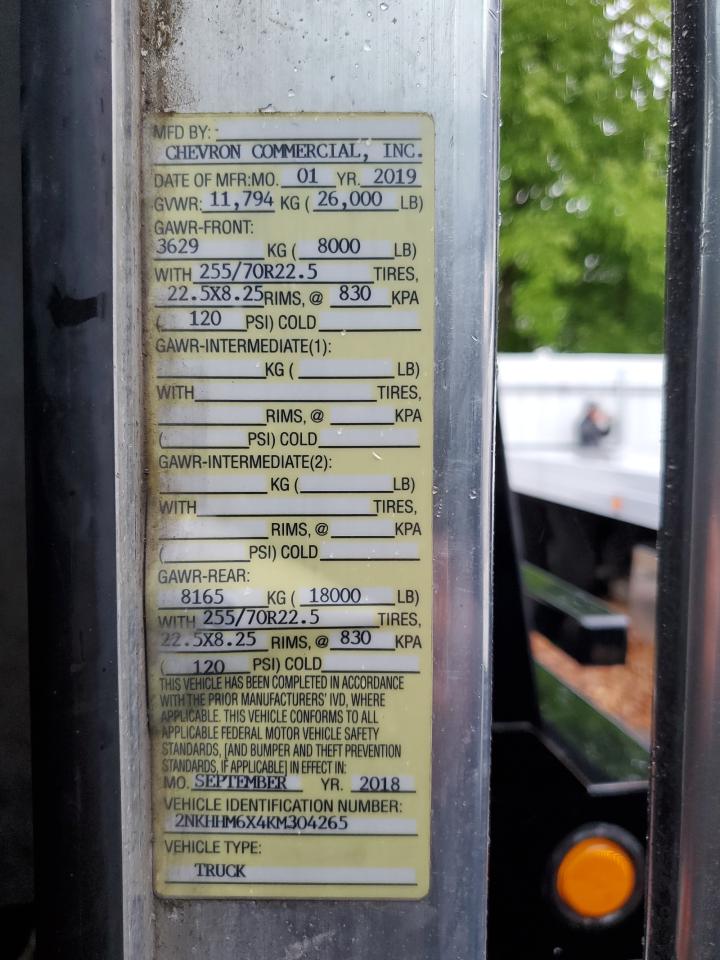 MFD BY:
CHEVRON COMMERCIAL, INC.
DATE OF MFR:MO. 01 YR. 2019
GVWR: 11,794 KG ( 26,000 LB)
GAWR-FRONT:
3629 KG ( 8000 LB)
WITH 255/70R22.5 TIRES,
22.5X8.25 RIMS, @ 830 KPA
( 120 PSI) COLD
GAWR-INTERMEDIATE(1):
KG ( LB)
WITH TIRES,
RIMS, @ KPA
( PSI) COLD
GAWR-INTERMEDIATE(2):
KG ( LB)
WITH TIRES,
RIMS, @ KPA
( PSI) COLD
GAWR-REAR:
8165 KG ( 18000 LB)
WITH 255/70R22.5 TIRES,
22.5X8.25 RIMS, @ 830 KPA
( 120 PSI) COLD
THIS VEHICLE HAS BEEN COMPLETED IN ACCORDANCE
WITH THE PRIOR MANUFACTURERS' IVD, WHERE
APPLICABLE. THIS VEHICLE CONFORMS TO ALL
APPLICABLE FEDERAL MOTOR VEHICLE SAFETY
STANDARDS, [AND BUMPER AND THEFT PREVENTION
STANDARDS, IF APPLICABLE] IN EFFECT IN:
MO. SEPTEMBER YR. 2018
VEHICLE IDENTIFICATION NUMBER:
2NKHHM6X4KM304265
VEHICLE TYPE:
TRUCK